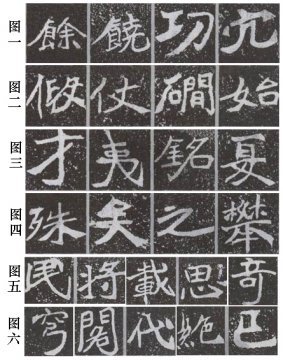 图一 餘 饒 功 穴
图二 假 仗 礀 始
图三 才 夷 銘 夏
图四 殊 矣 之 攀
图五 民 将 載 思 奇
图六 穹 閣 代 絶 已